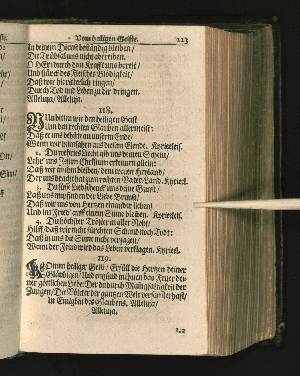 Vom heiligen Geiste. 223
In deinem Dienst beständig bleiben/
Die Trübsal uns nicht abtreiben.
O HErr durch dein Krafft uns bereit/
Und stärck des Fleisches Blödigkeit/
Daß wir hie ritterlich ringen/
Durch Tod und Leben zu dir dringen.
Alleluja/ Alleluja.
118.
NUn bitten wir den heiligen Geist
Umb den rechten Glauben allermeist:
Daß er uns behüte an unserm Ende/
Wenn wir heimfahren aus diesem Elende. Kyrieleis.
2. Du werthes Liecht gib uns deinen Schein/
Lehr uns JEsum Christum erkennen allein:
Daß wir an ihm bleiben/ dem treuen Heyland/
Der uns bracht hat zum rechten Vater-Land. Kyriel.
3. Du süsse Lieb schenck uns deine Gunst/
Laß uns empfinden der Liebe Brunst/
Daß wir uns von Hertzen einander lieben/
Und im Fried' auff einem Sinne bleiben. Kyrieleis.
4. Du höchster Tröster in aller Noht/
Hilff/ daß wir nicht fürchten Schand noch Todt:
Daß in uns die Sinne nicht verzagen/
Wenn der Feind wird das Leben verklagen. Kyriel.
119.
KOmm heiliger Geist/ Erfüll die Hertzen deiner
Gläubigen/ Und entzünd in ihnen das Feuer dei-
ner göttlichen Liebe: Der du durch Manigfaltigkeit der
Zungen/ Die Völcker der gantzen Welt versamlet hast/
in Einigkeit des Glaubens, Alleluja/
Alleluja.